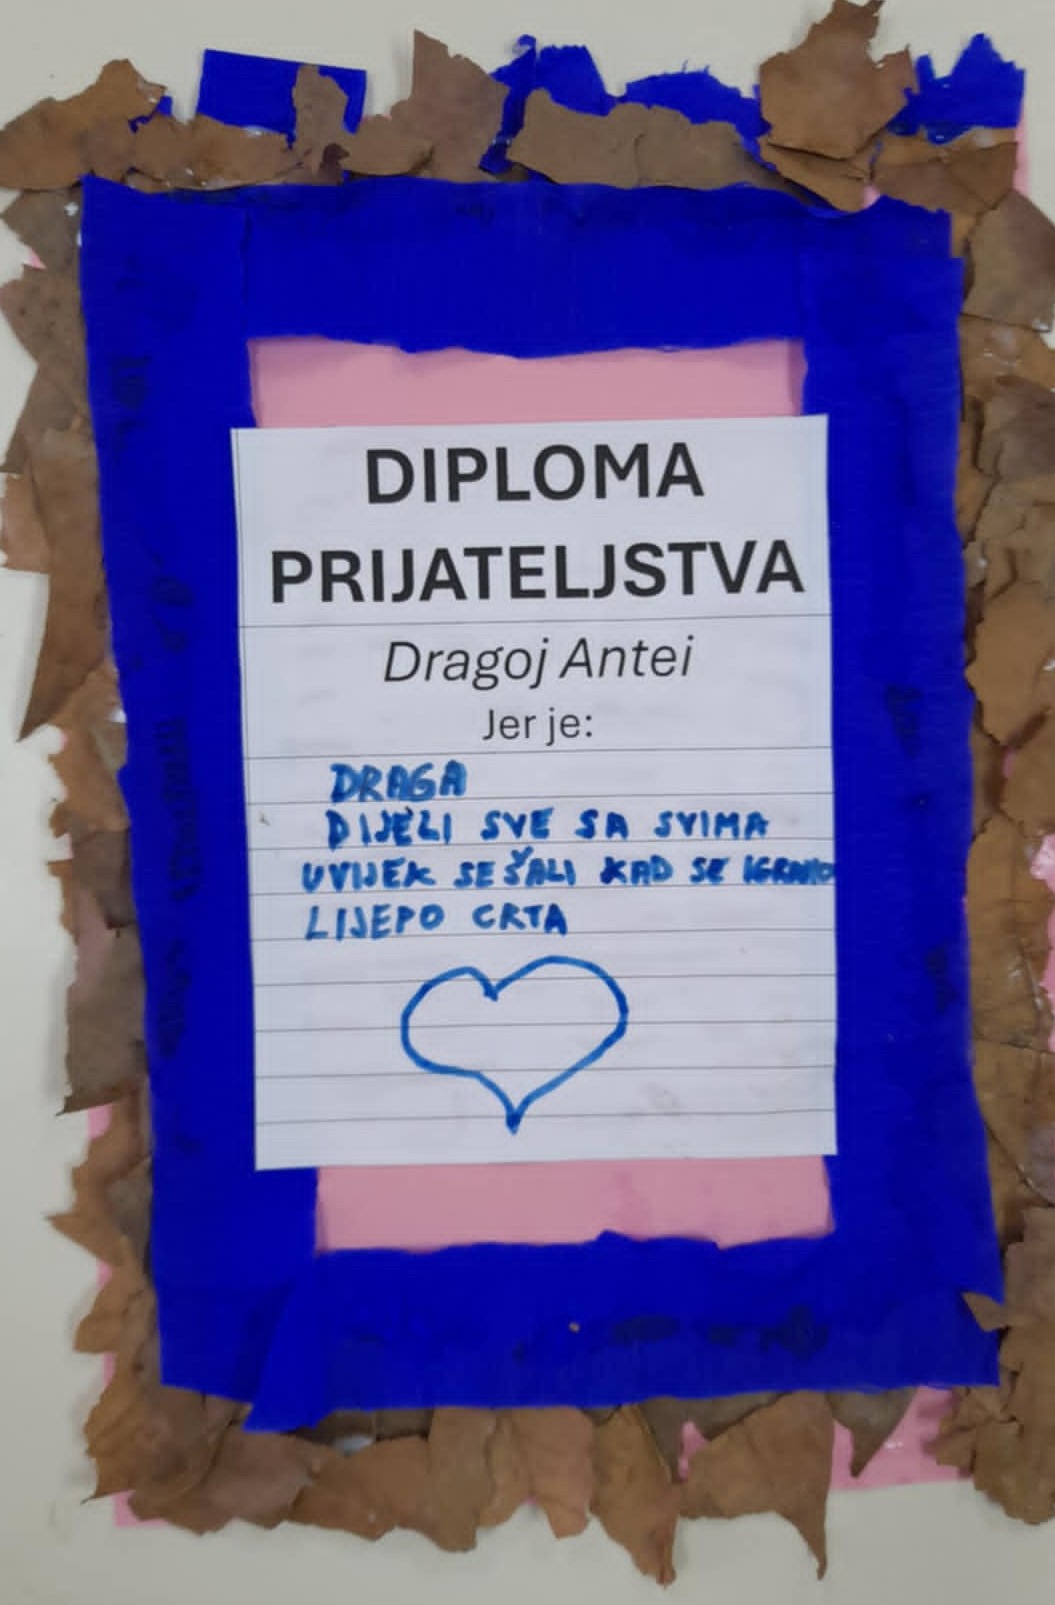 DIPLOMA
PRIJATELJSTVA
Dragoj Antei
Jer je:
DRAGA
DIJELI SVE SA SVIMA
UVIJEK SE ŠALI KAD SE IGRAMO
LIJEPO CRTA